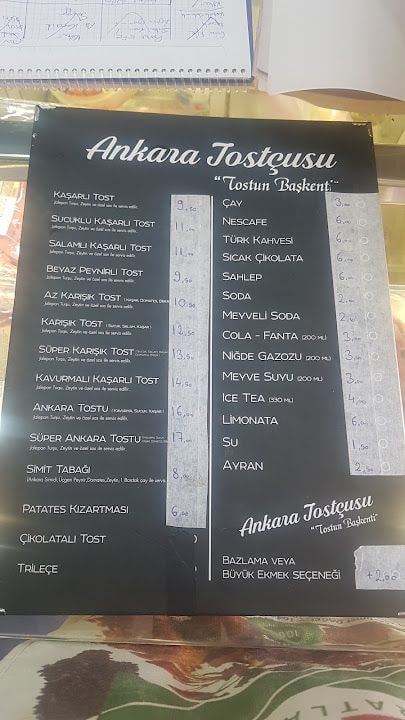 Ankara Tostçusu
"Tostun Başkenti"
KAŞARLI TOST 9,50
Jalepon Turşu, Zeytin ve özel sos ile servis edilir.
SUCUKLU KAŞARLI TOST 11,00
Jalepon Turşu, Zeytin ve özel sos ile servis edilir.
SALAMLI KAŞARLI TOST 11,00
Jalepon Turşu, Zeytin ve özel sos ile servis edilir.
BEYAZ PEYNİRLİ TOST 9,50
Jalepon Turşu, Zeytin ve özel sos ile servis edilir.
AZ KARIŞIK TOST 10,50
Jalepon Turşu, Zeytin ve özel sos ile servis edilir.
KARIŞIK TOST ( Sucuk, Salam, Kaşar ) 12,50
Jalepon Turşu, Zeytin ve özel sos ile servis edilir.
SÜPER KARIŞIK TOST 13,50
Jalepon Turşu, Zeytin ve özel sos ile servis edilir.
KAVURMALI KAŞARLI TOST 14,50
Jalepon Turşu, Zeytin ve özel sos ile servis edilir.
ANKARA TOSTU ( Kavurma, Sucuk, Kaşar ) 16,00
Jalepon Turşu, Zeytin ve özel sos ile servis edilir.
SÜPER ANKARA TOSTU 17,00
Jalepon Turşu, Zeytin ve özel sos ile servis edilir.
SİMİT TABAĞI 8,00
(Ankara Simidi, Üçgen Peynir, Domates, Zeytin, 1 Bardak çay ile servis
PATATES KIZARTMASI 6,00
ÇİKOLATALI TOST
TRİLEÇE
ÇAY 3,00
NESCAFE 6,00
TÜRK KAHVESİ 6,00
SICAK ÇİKOLATA 6,00
SAHLEP 6,00
SODA 2,00
MEYVELİ SODA
COLA - FANTA (200 ML) 3,00
NİĞDE GAZOZU (200 ML) 3,00
MEYVE SUYU (200 ML) 3,00
ICE TEA (330 ML) 4,00
LİMONATA 6,00
SU 1,50
AYRAN 2,50
Ankara Tostçusu
"Tostun Başkenti"
BAZLAMA VEYA
BÜYÜK EKMEK SEÇENEĞİ +2,00